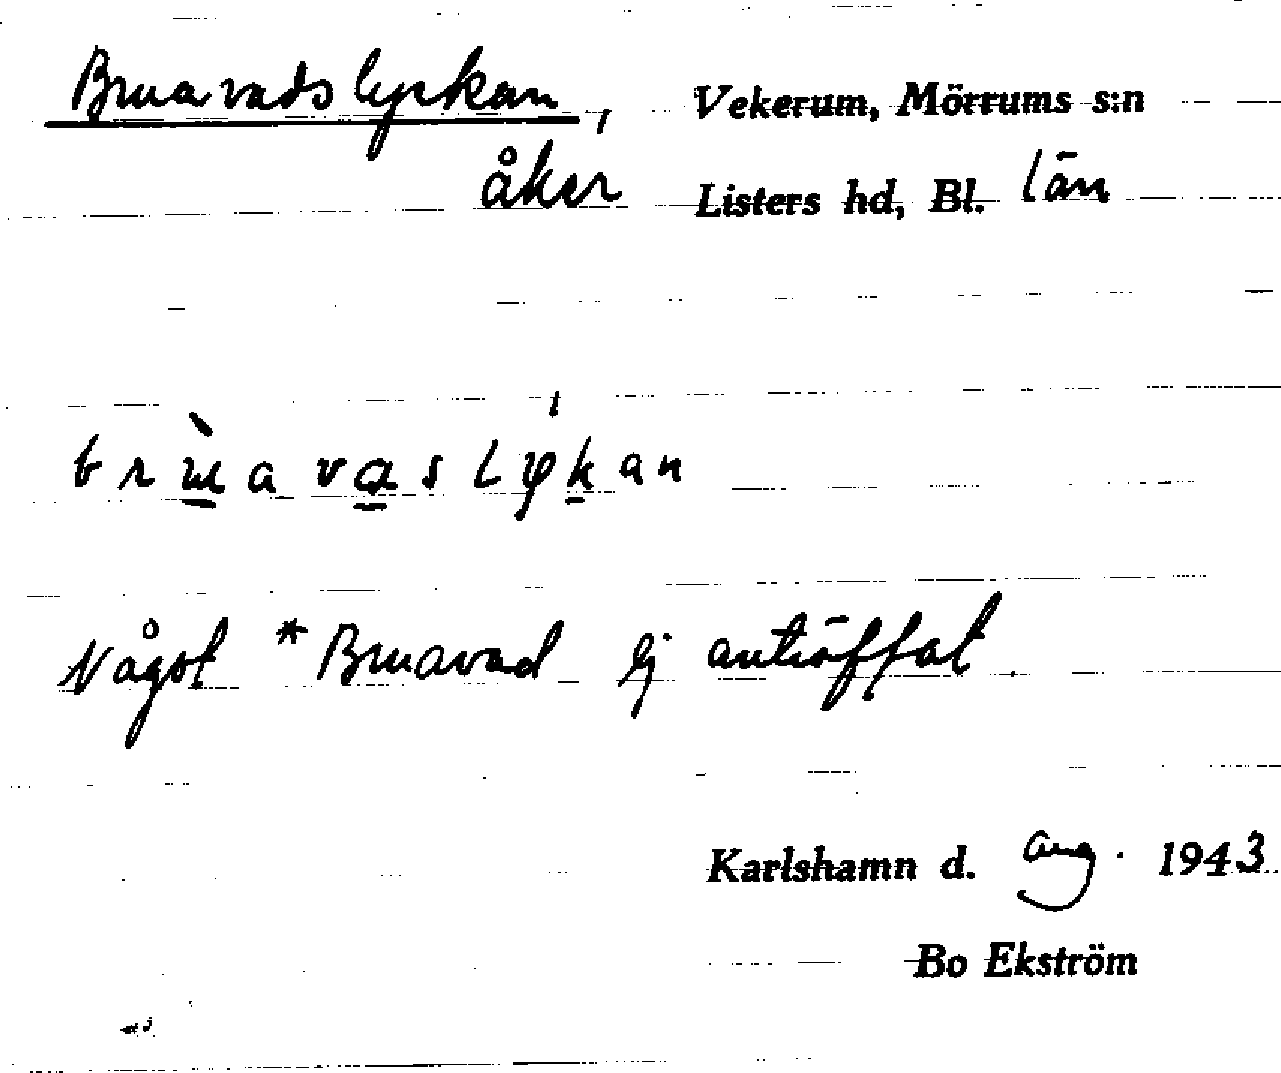 Bruavadslyckan, Vekerum, Mörrums s:n
åker Listers hd, Bl. län
Något *Bruavad ej anträffat.
Karlshamn d. aug. 1943
Bo Ekström